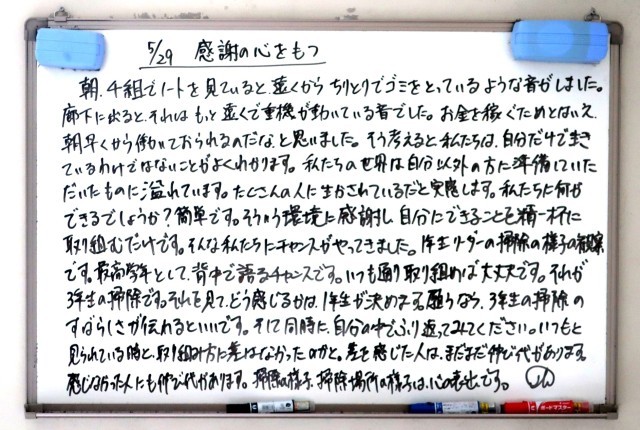 5/29 感謝の心をもつ
朝、4組でノートを見ていると、遠くからちりとりでゴミをとっているような音がしました。
廊下に出ると、それはもっと遠くで重機が動いている音でした。お金を稼ぐためとはいえ、
朝早くから働いておられるのだな、と思いました。そう考えると私たちは、自分だけで生き
ているわけではないことがよくわかります。私たちの世界は自分以外の方に準備していた
だいたものに溢れています。たくさんの人に生かされているだと実感します。私たちに何が
できるでしょうか?簡単です。そういう環境に感謝し自分にできることを精一杯に
取り組むだけです。そんな私たちにチャンスがやってきました。1年生リーダーの掃除の様子の観察
です。最高学年として、背中で語るチャンスです。いつも通り取り組めば大丈夫です。それが
3年生の掃除です。それを見て、どう感じるかは、1年生が決めます。願うなら、3年生の掃除の
すばらしさが伝わるといいです。そして同時に、自分の中でふり返ってみてください。いつもと
見られている時と、取り組み方に差はなかったのかと。差を感じた人は、まだまだ伸び代があります。
感じなかった人にも伸び代があります。掃除の様子、掃除場所の様子は、心の表出です。
ボードマスター